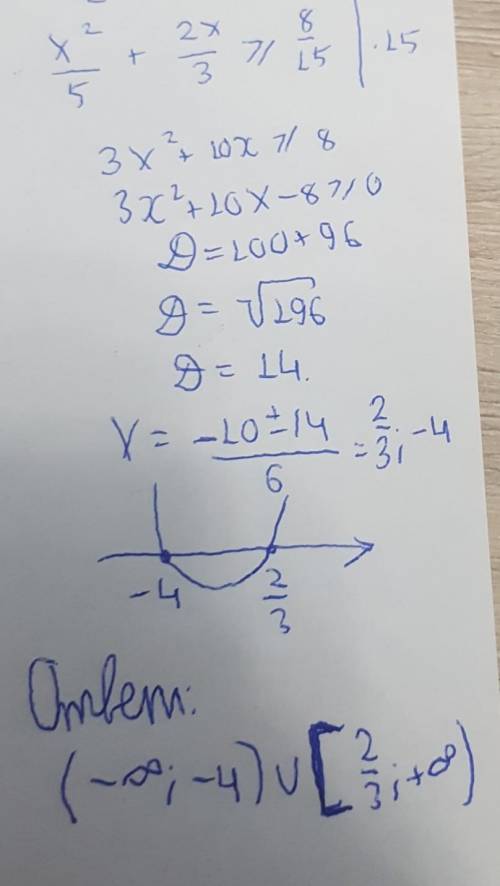 x²/5 + 2x/3 ⩾ 8/15 | ·15
3x² + 10x ⩾ 8
3x² + 10x − 8 ⩾ 0
D = 100 + 96
D = √196
D = 14.
X = (−10 ± 14)/6 = 2/3; −4
−4 2/3
Ответ:
(−∞; −4) ∪ [2/3; +∞)